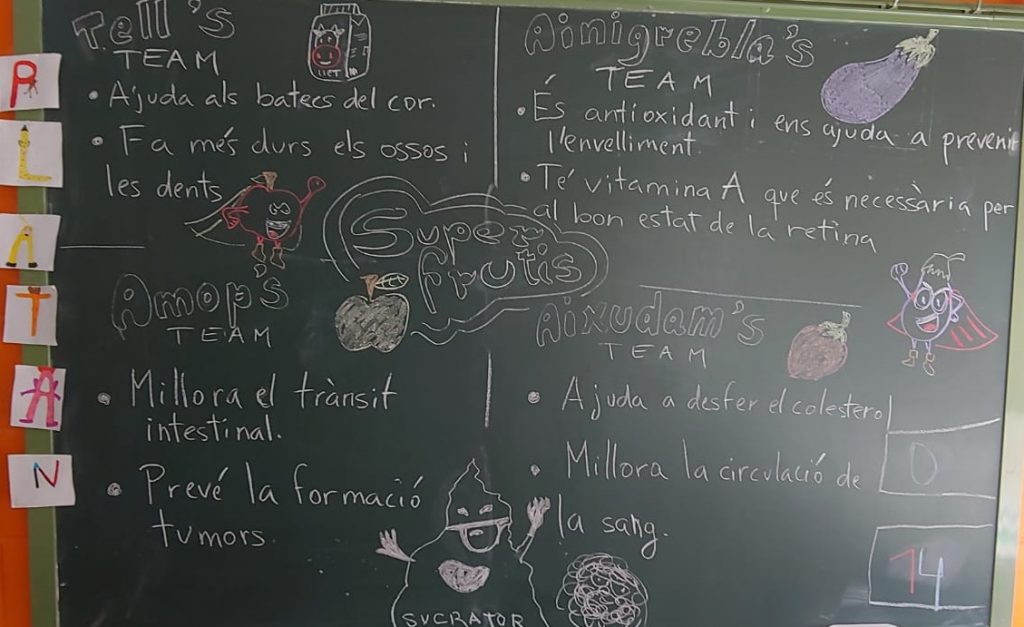 P
L
À
T
A
N
Tell's
TEAM
LLET
• Ajuda als batecs del cor.
• Fa més durs els ossos i
les dents
Ainigrebla's
TEAM
• És antioxidant i ens ajuda a prevenir
l'envelliment.
• Té vitamina A que és necessària per
al bon estat de la retina
Super
frutis
Amop's
TEAM
• Millora el trànsit
intestinal.
• Prevé la formació
tumors.
Aixudam's
TEAM
• Ajuda a desfer el colesterol
• Millora la circulació de
la sang.
0
14
SUCRATOR